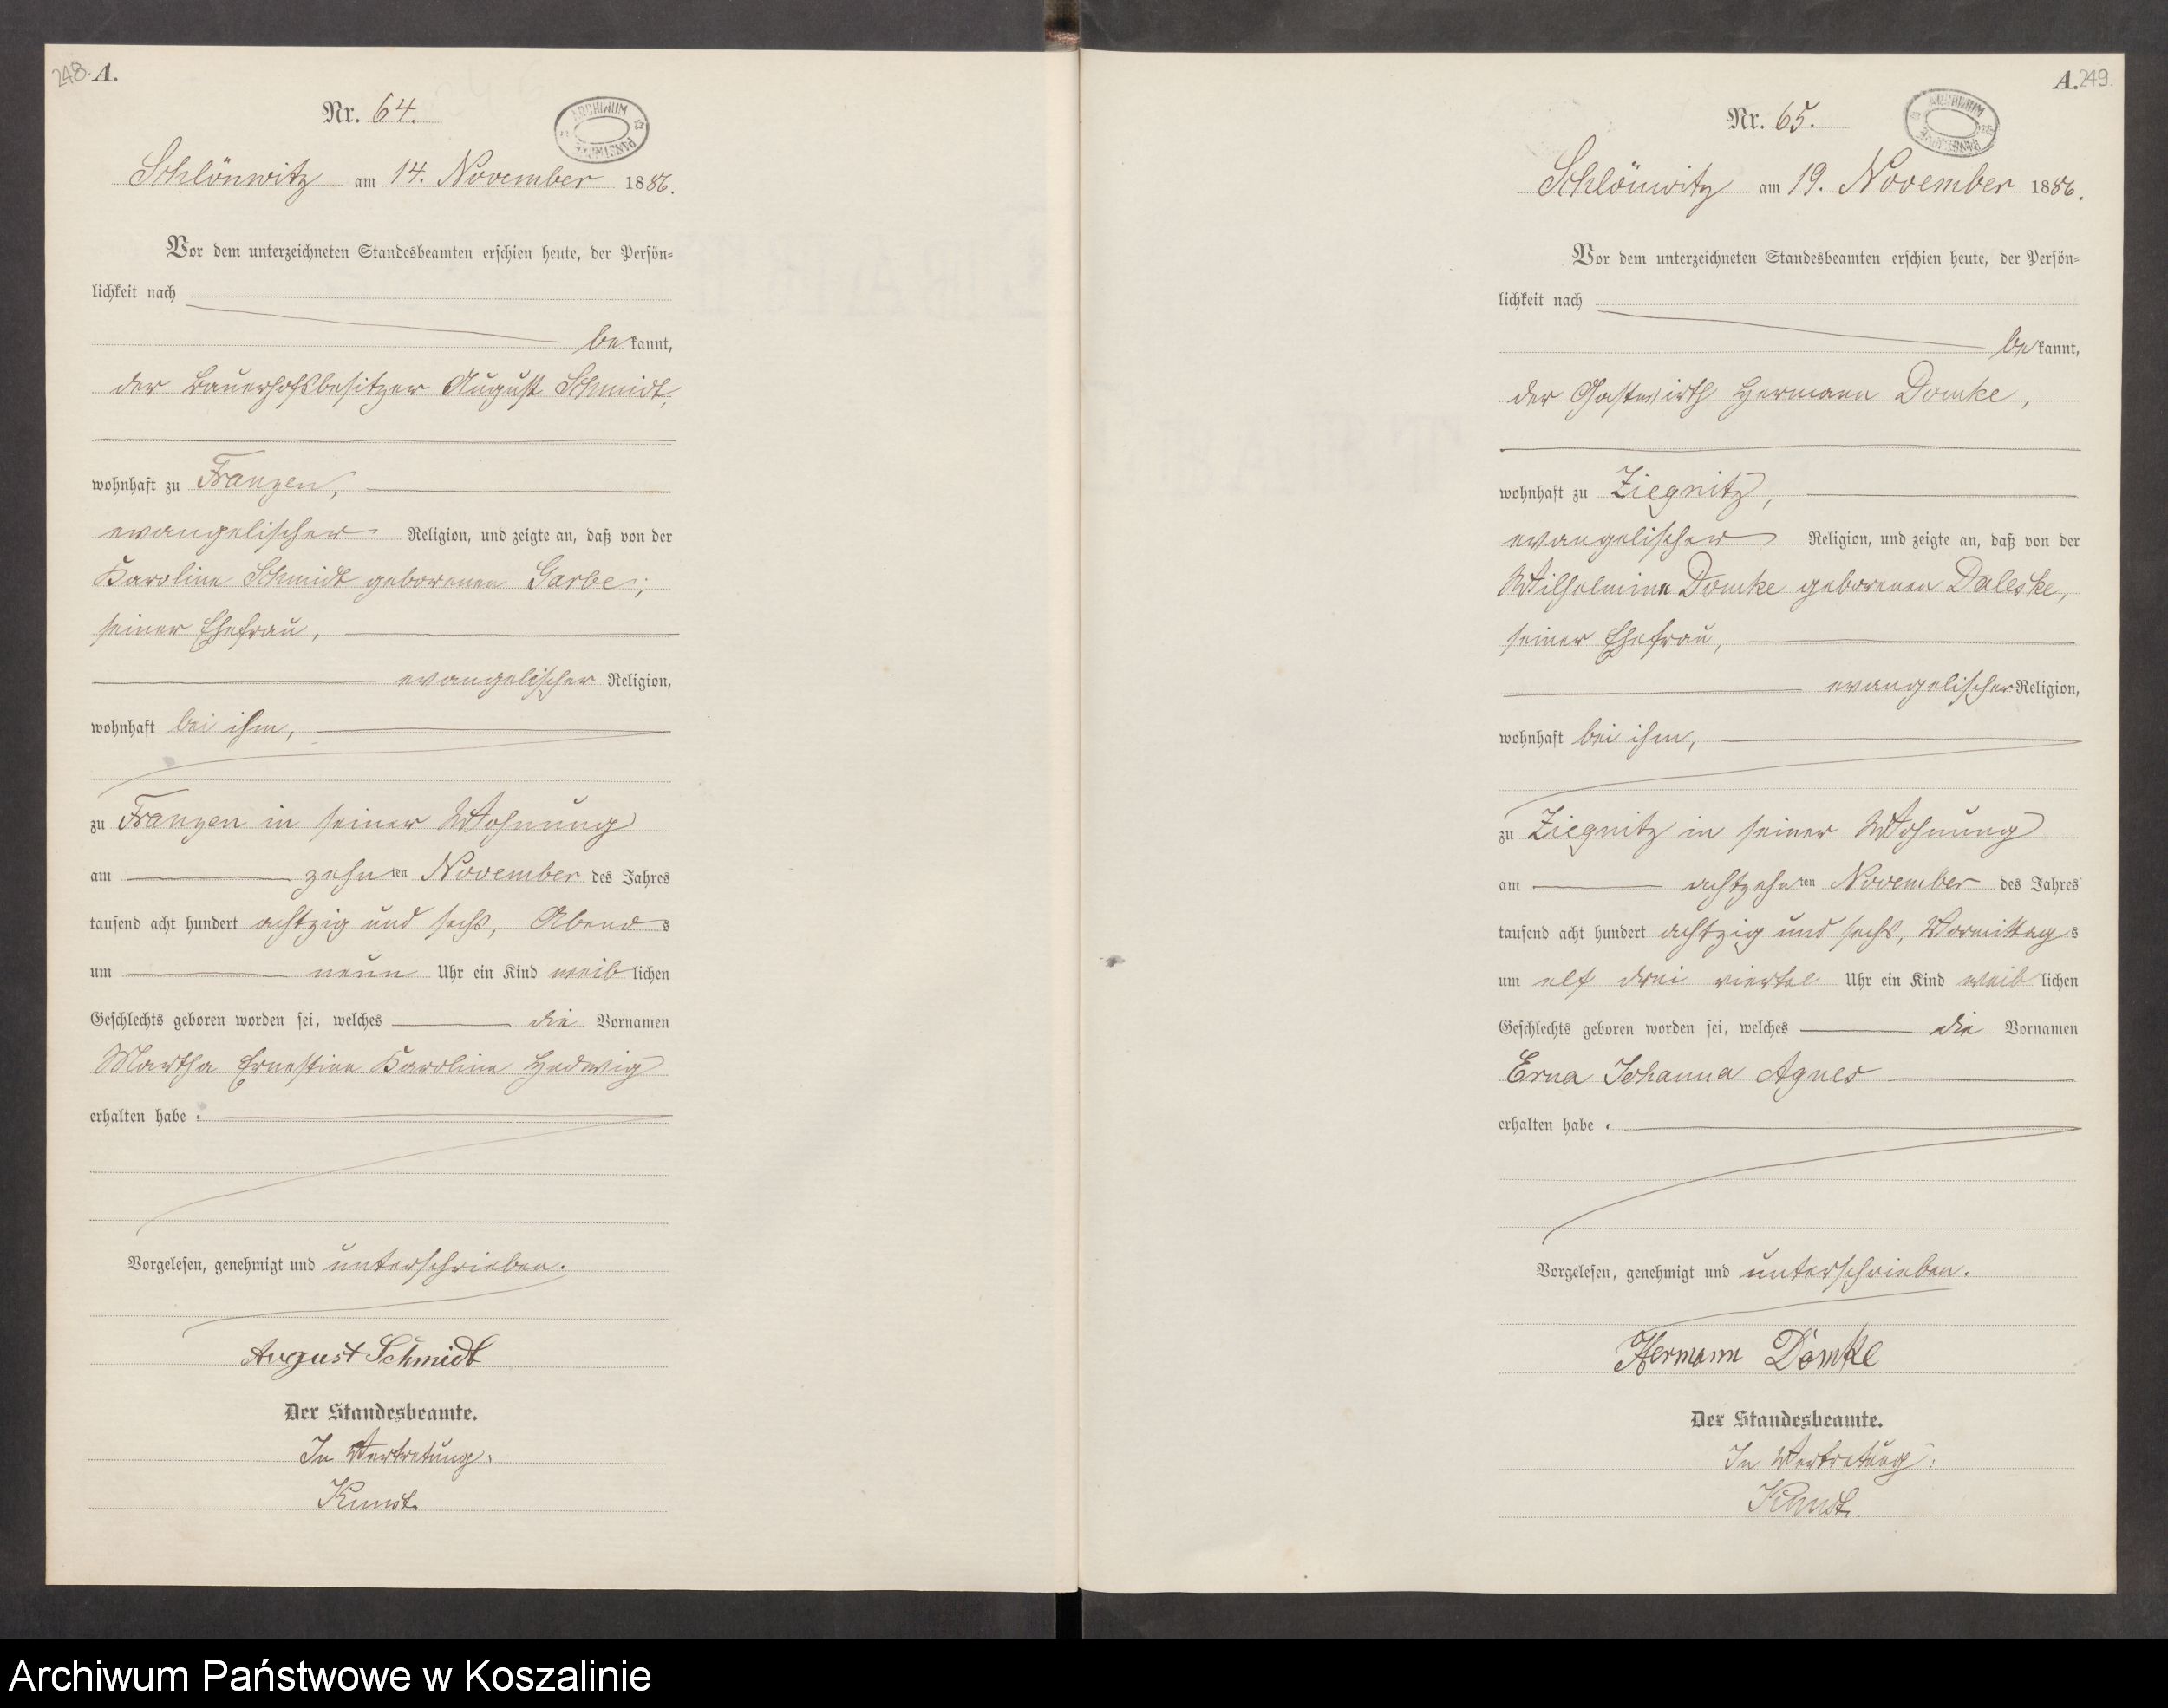 248. A.
Nr. 64.
ARCHIWUM PAŃSTWOWE
Schlönwitz am 14. November 1886.
Vor dem unterzeichneten Standesbeamten erschien heute, der Persön-
lichkeit nach
bekannt,
der Bauerhofsbesitzer August Schmidt,
wohnhaft zu Franzen,
evangelischer Religion, und zeigte an, daß von der
Karoline Schmidt geborenen Garbe,
seiner Ehefrau,
evangelischer Religion,
wohnhaft bei ihm,
zu Franzen in seiner Wohnung
am zehnten November des Jahres
tausend acht hundert achtzig und sechs, Abends
um neun Uhr ein Kind weiblichen
Geschlechts geboren worden sei, welches die Vornamen
Martha Ernestine Karoline Hedwig
erhalten habe.
Vorgelesen, genehmigt und unterschrieben.
August Schmidt
Der Standesbeamte.
In Vertretung:
Kunst.
A. 249.
Nr. 65.
ARCHIWUM PAŃSTWOWE
Schlönwitz am 19. November 1886.
Vor dem unterzeichneten Standesbeamten erschien heute, der Persön-
lichkeit nach
bekannt,
der Gastwirth Hermann Domke,
wohnhaft zu Ziegnitz,
evangelischer Religion, und zeigte an, daß von der
Wilhelmine Domke geborenen Daleske,
seiner Ehefrau,
evangelischer Religion,
wohnhaft bei ihm,
zu Ziegnitz in seiner Wohnung
am achtzehnten November des Jahres
tausend acht hundert achtzig und sechs, Vormittags
um elf drei viertel Uhr ein Kind weiblichen
Geschlechts geboren worden sei, welches die Vornamen
Erna Johanna Agnes
erhalten habe.
Vorgelesen, genehmigt und unterschrieben.
Hermann Domke
Der Standesbeamte.
In Vertretung:
Kunst.
Archiwum Państwowe w Koszalinie